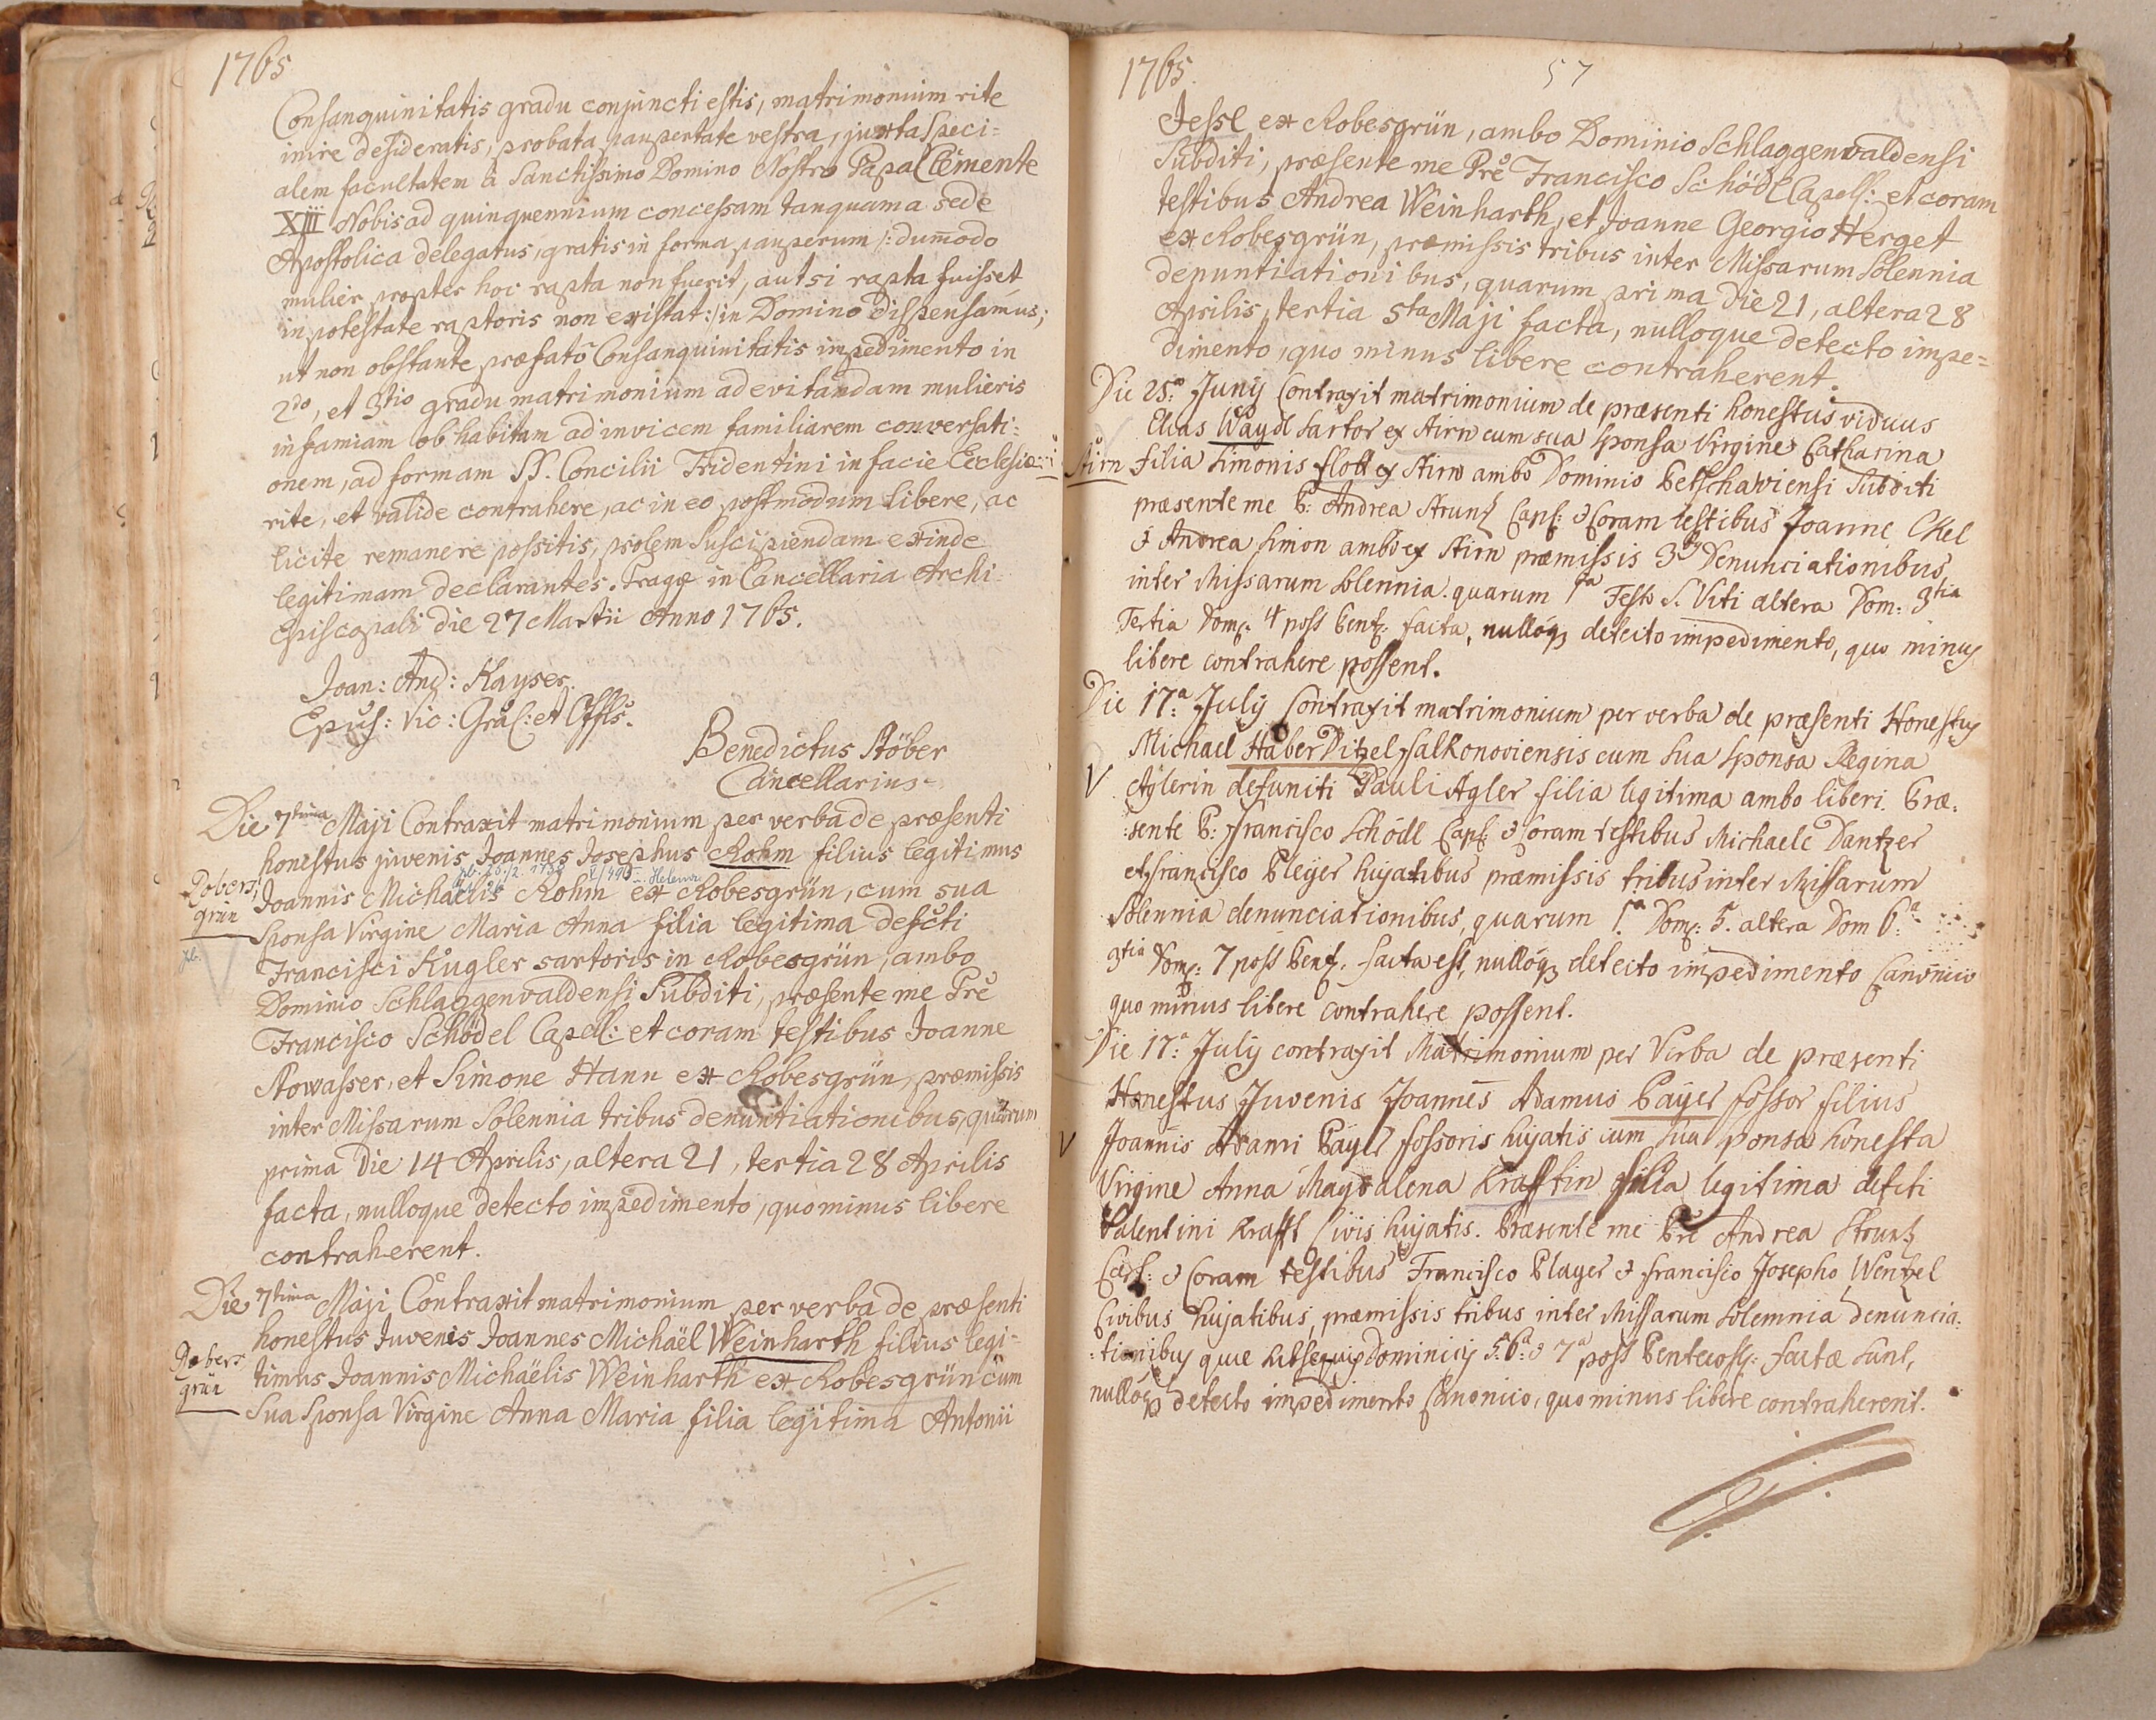 1765
Consanguinitatis gradu conjuncti estis, matrimonium rite
inire desideratis, probata paupertate vestra, juxta Speci=
alem facultatem à Sanctissimo Domino Nostro Papa Clemente
XIII Nobis ad quinquennium concessam tanquam a sede
Apostolica delegatus, gratis in forma pauperum /: dum̄odo
mulier propter hoc rapta non fuerit, aut si rapta fuisset
in potestate raptoris non existat :/ in Domino dispensamus;
ut non obstante præfato Consanguinitatis impedimento in
2do, et 3tio gradu matrimonium ad evitandam mulieris
infamiam ob habitam ad invicem familiarem conversati=
onem, ad formam SS. Concilii Tridentini in facie Ecclesiæ
rite, et valide contrahere, ac in eo postmodum libere, ac
licite remanere possitis, prolem Suscipiendam exinde
legitimam declarantes. Pragæ in Cancellaria Archi=
Episcopali die 27 Martii Anno 1765.
Joan: And: Kayser
Epus: Vic: Gräl: et Offls.
Benedictus Stöber
Cancellarius
Die 7tima Maji Contraxit matrimonium per verba de præsenti
honestus juvenis Joannes Josephus Rohm filius legitimus
Robers
grün
Joannis Michaëlis Rohm ex Robesgrün, cum sua
Sponsa Virgine Maria Anna filia legitima defcti
Francisci Kugler sartoris in Robesgrün, ambo
Dominio Schlaggenvaldensi Subditi, præsente me Pre
Francisco Schödel Capell: et coram testibus Joanne
Rowasser, et Simone Hann ex Robesgrün, præmissis
inter Missarum Solennia tribus denuntiationibus, quarum
prima Die 14 Aprilis, altera 21, tertia 28 Aprilis
facta, nulloque detecto impedimento, quo minus libere
contraherent.
Die 7tima Maji Contraxit matrimonium per verba de præsenti
honestus Juvenis Joannes Michaël Weinharth filius legi-
Robers
grün
timus Joannis Michaëlis Weinharth ex Robesgrün cum
Sua Sponsa Virgine Anna Maria filia legitima Antonii
1765.
57
Jessl ex Robesgrün, ambo Dominio Schlaggenvaldensi
Subditi, præsente me Pre Francisco Schödl Capell: et coram
testibus Andrea Weinharth, et Joanne Georgio Herget
ex Robesgrün, præmissis tribus inter Missarum Solennia
denuntiationibus, quarum prima Die 21, altera 28
Aprilis, tertia 5ta Maji facta, nulloque detecto impe=
dimento, quo minus libere contraherent.
Die 25a Junÿ Contraxit matrimonium de præsenti honestus viduus
Elias Waydl Sartor ex Stirn cum sua Sponsa Virgine Catharina
Stirn
filia Simonis flott ex Stirn ambo Dominio Petschaviensi Subditi
præsente me P: Andrea Strunz Capl: & Coram testibus Joanne Chel
& Andrea Simon ambo ex Stirn præmissis 3bg Denunciationibus
inter Missarum Solennia. quarum 1a Festo S. Viti altera Dom: 3tia
Tertia Domc: 4 post Pent: facta, nulloq3 detecto impedimento, quo minus
libere contrahere possent.
Die 17a Julÿ Contraxit matrimonium per verba de præsenti Honestus
Michael HaberDitzel falkonoviensis cum Sua Sponsa Regina
V
Aglerin defuncti Pauli Agler filia legitima ambo liberi. Præ:
:sente P: Francisco Schödl Capl: & Coram testibus Michaele Dantzer
et Francisco Pleyer hujatibus præmissis tribus inter Missarum
Solennia denunciationibus, quarum 1a Domc: 5. altera Dom 6a
3tia Domc: 7 post Pent. facta est, nulloq3 detecto impedimento Canonico
quo minus libere contrahere possent.
Die 17a Julÿ contraxit Matrimonium per Verba de præsenti
Honestus Juvenis Joannes Adamus Payer fossor filius
V
Joannis Adami Payer fossoris hujatis cum sua sponsa honesta
Virgine Anna Magdalena Krafftin filia legitima defcti
Valentini Krafft Civis hujatis. Præsente me Pre Andrea Strunz
Capl: & Coram testibus Francisco Player & Francisco Josepho Wentzel
Civibus hujatibus, præmissis tribus inter Missarum Solemnia denuncia:
:tionibus quæ Subsequis Dominicis 5. 6a & 7a post Pentecost: factæ sunt,
nulloq3 detecto impedimento Canonico, quo minus libere contraherent.